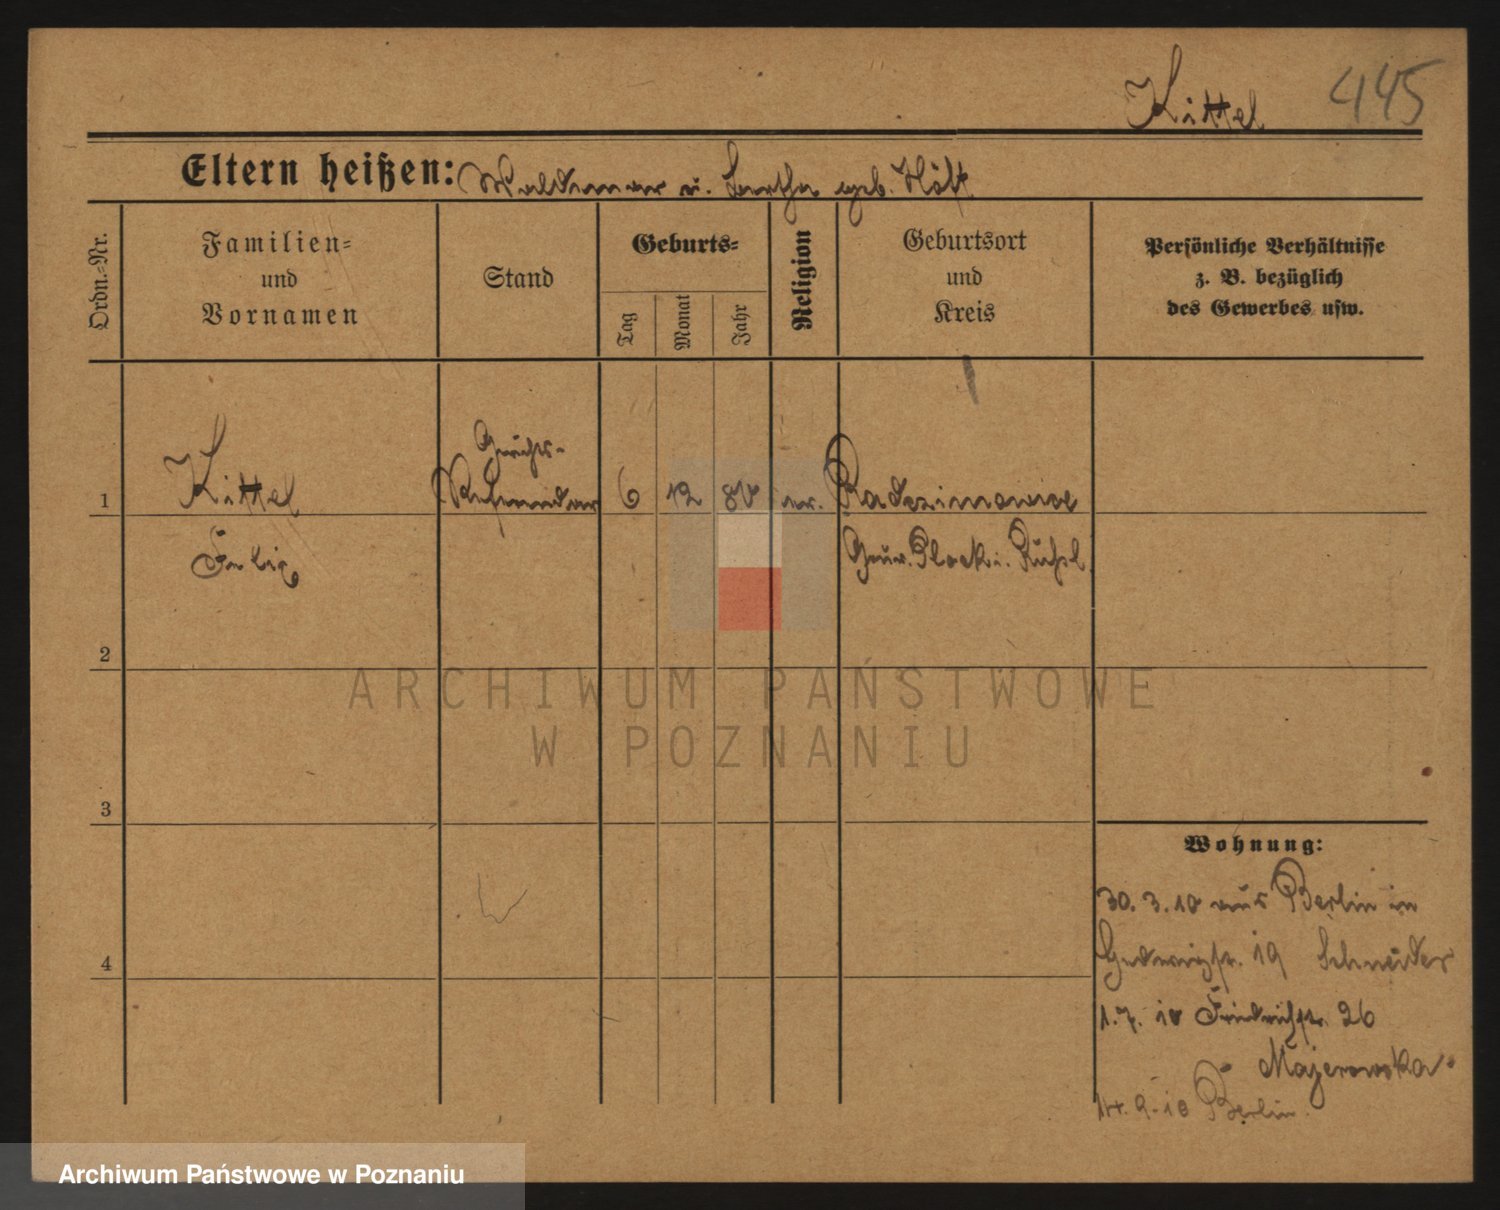 Kittel 445
Eltern heißen: Waldemar u. Bertha geb. Höft
Ordn.-Nr.
Familien-
und
Vornamen
Stand
Geburts-
Tag
Monat
Jahr
Religion
Geburtsort
und
Kreis
Persönliche Verhältnisse
z. B. bezüglich
des Gewerbes usw.
Gerichts-
1 Kittel Referendar 6 12 ev. Radzimowice
Felix Gouv. Plock i. Rußl.
2
ARCHIWUM PAŃSTWOWE
W POZNANIU
3
Wohnung:
30. 3. 10 aus Berlin in
19 Schneider
4
1. 7. 10 Friedrichstr. 26
Majerowska
14. 9. 10 Berlin.
Archiwum Państwowe w Poznaniu